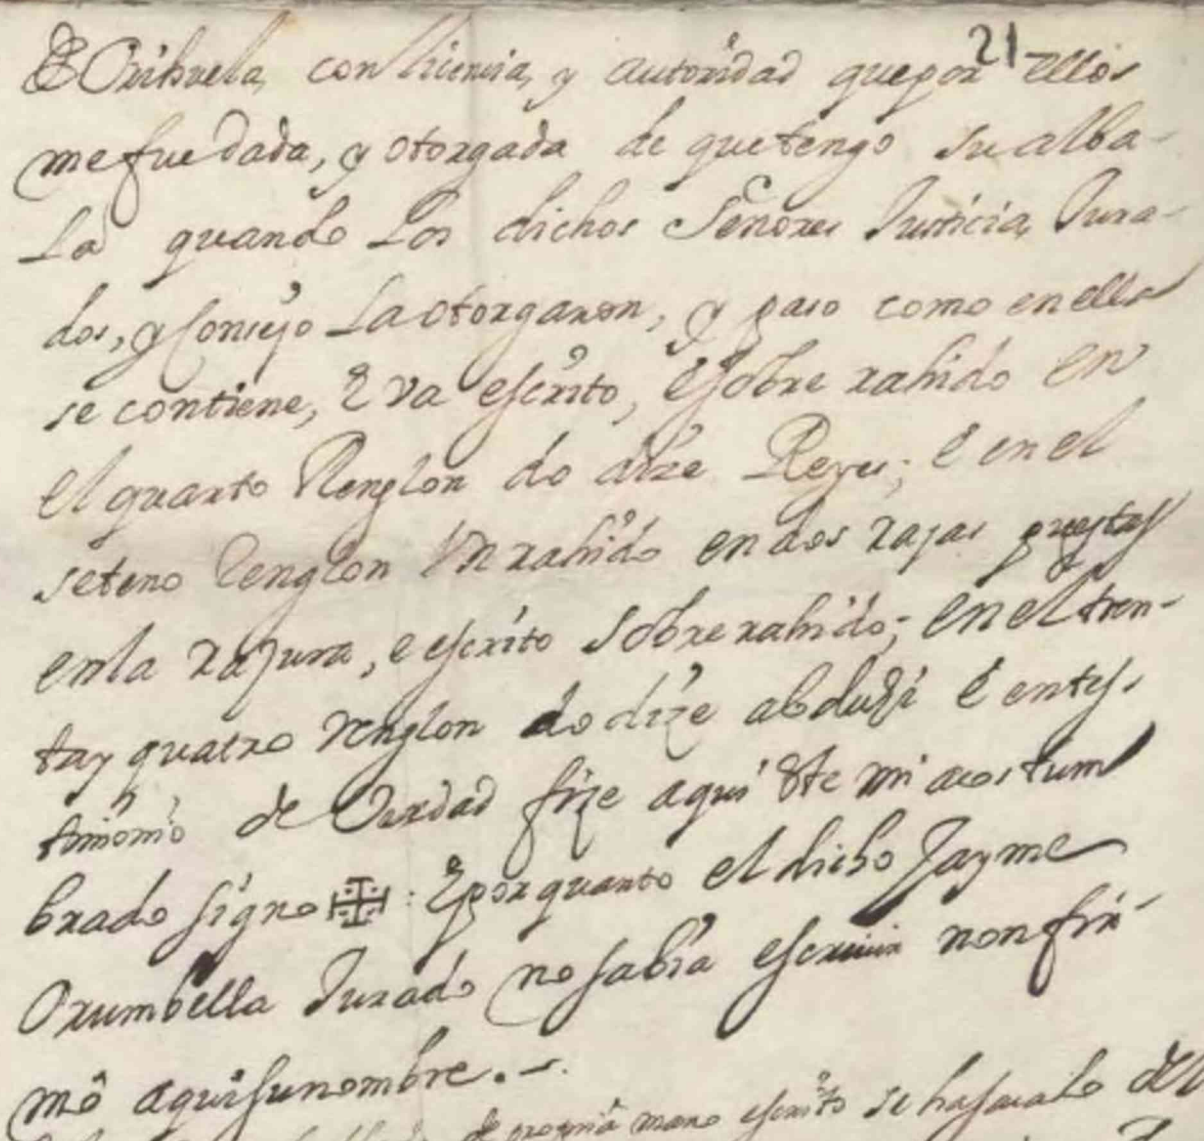 21
de Orihuela, con licencia, y autoridad que por ellos
me fue dada, y otorgada de que tengo su alba-
La quando Los dichos Señores Justicia, Jura-
dos, y Consejo La otorgaron, y paso como en ella
se contiene, E va escrito, e sobre rahido en
el quarto Renglon do dize Reyes; E en el
seteno Renglon un rahido en dos rayas puestas
en la rasura, e escrito sobre rahido; en el tren-
ta y quatro renglon do dize abdudi E en tes-
timonio de Verdad fize aqui este mi acostum
brado signo : E por quanto el dicho Jayme
Orumbella Jurado no sabia escriuir non fir-
mô aqui su nombre. -
de propria mano escrito se ha sacado del